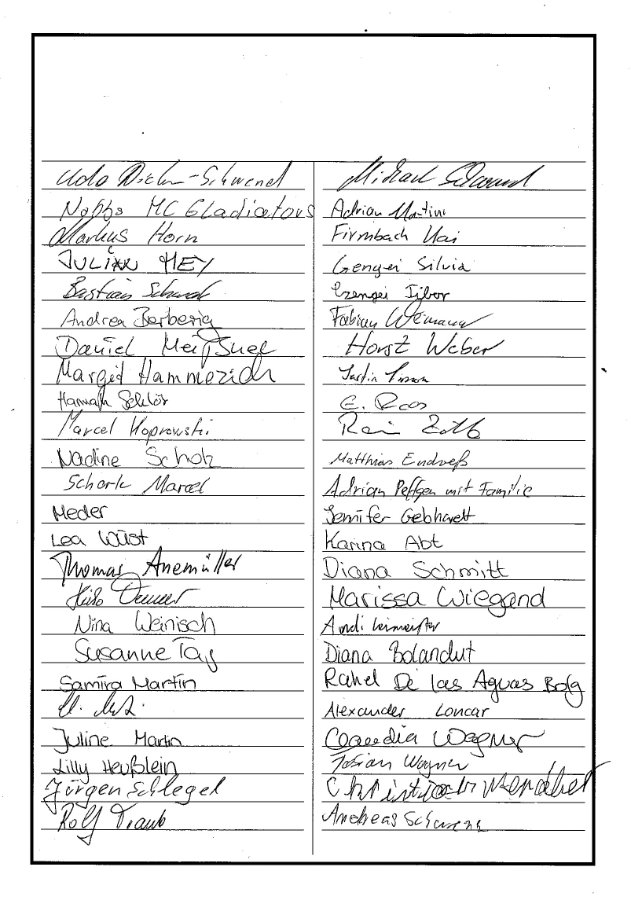 Udo
Nobbs MC Gladiators
Markus Horn
JULIAN HEY
Bastian
Andrea Berberig
Daniel Meißner
Margit Hammerich
Hannah
Marcel Koprowski
Nadine Scholz
Schork Marcel
Meder
Lea Wüst
Thomas Anemüller
Nina Weinisch
Susanne Tag
Samira Martin
Juline Martin
Lilly Heußlein
Jürgen Schlegel
Rolf Traub
Michael
Adrian Martini
Firmbach Kai
Gengei Silvia
Tibor
Fabian
Horst Weber
E. Roos
Matthias Endreß
Adrian Peffgen mit Familie
Jennifer Gebhardt
Karina Abt
Diana Schmitt
Marissa Wiegand
Andi
Diana Bolandut
Rahel De las Aguas Bolg
Alexander Loncar
Claudia Wagner
Fabian Wagner
Andreas